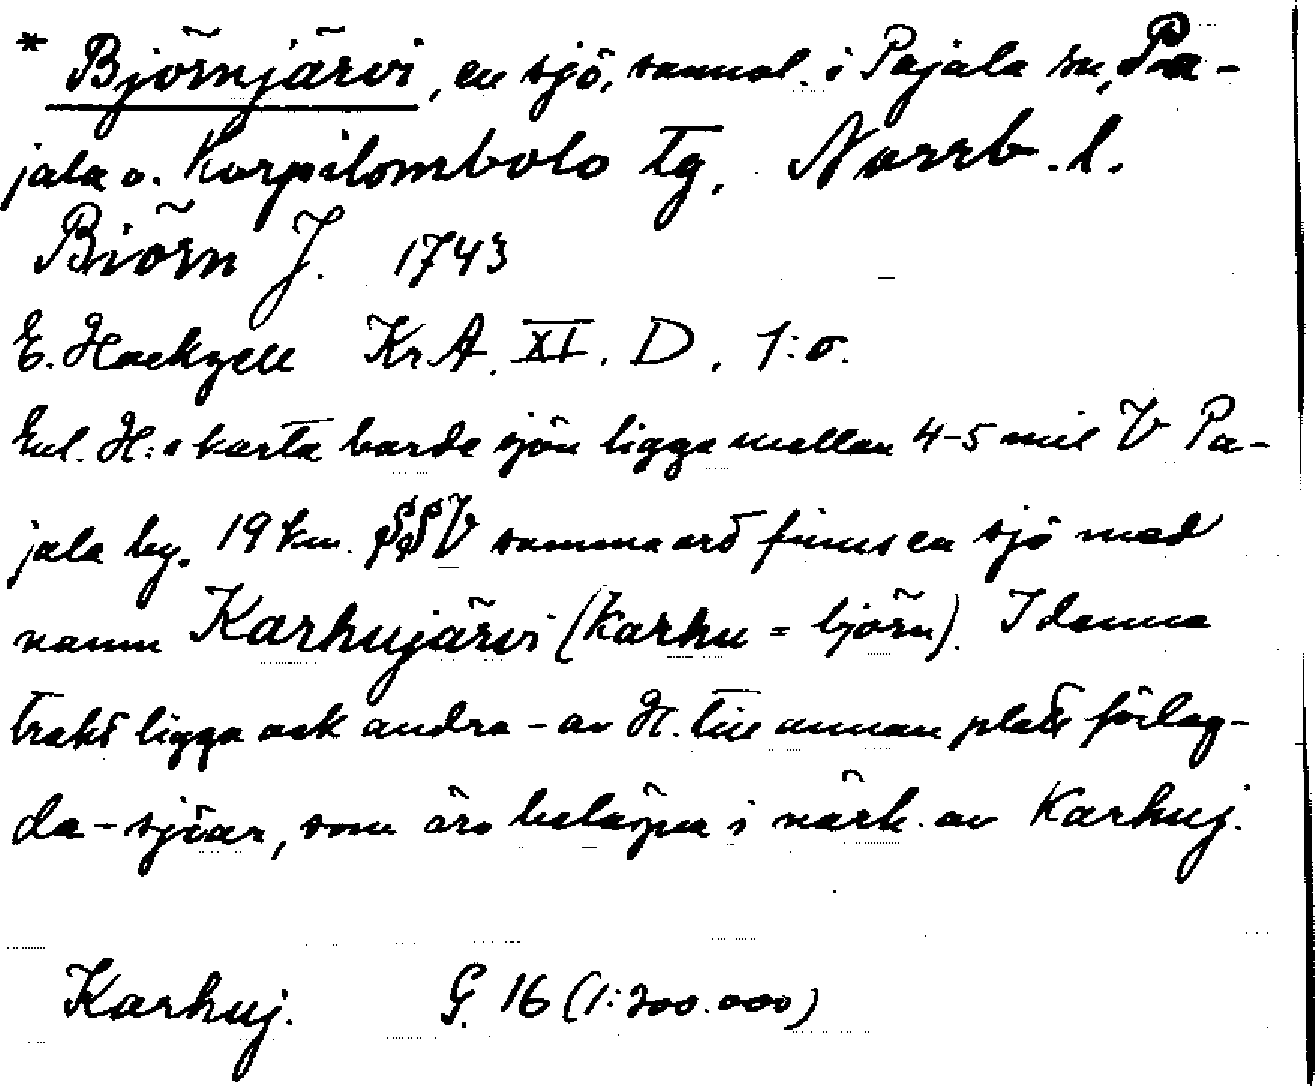 * Björnjärvi, en sjö, sannol. i Pajala sn, Pa-
jala o. Korpilombolo tg, Norrb. l.
Biörn J. 1743
E. Hackzell Kr.A. XI. D. 1:o.
Enl. H:s karta borde sjön ligga mellan 4-5 mil V Pa-
jala by. 19 km. SSV samma ort finns en sjö med
namn Karhujärvi (karhu = björn). I denna
trakt ligga ock andra - av H. till annan plats förlag-
da - sjöar, som äro belägna i närh. av Karhuj.
Karhuj. G. 16 (1:200.000)